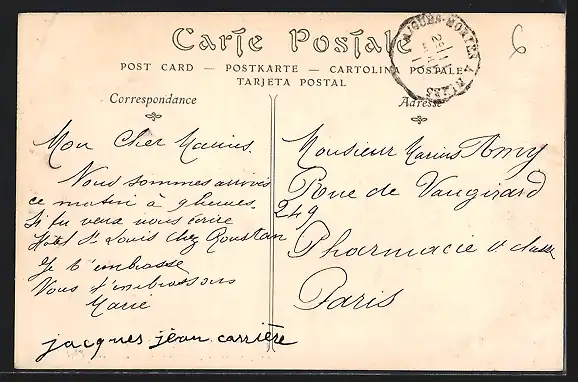 Carte Postale
POST CARD — POSTKARTE — CARTOLINA POSTALE
TARJETA POSTAL
Correspondance
Adresse
AIGUES-MORTES A NIMES
6
Mon Cher Marius
Nous sommes arrivés
ce matin à 9 heures.
Si tu veux nous écrire
Hôtel St Louis chez Roustan
Je t'embrasse
Nous t'embrassons
Marie
jacques jean carrière
Monsieur Marius Amy
Rue de Vaugirard
249
Pharmacie
Paris